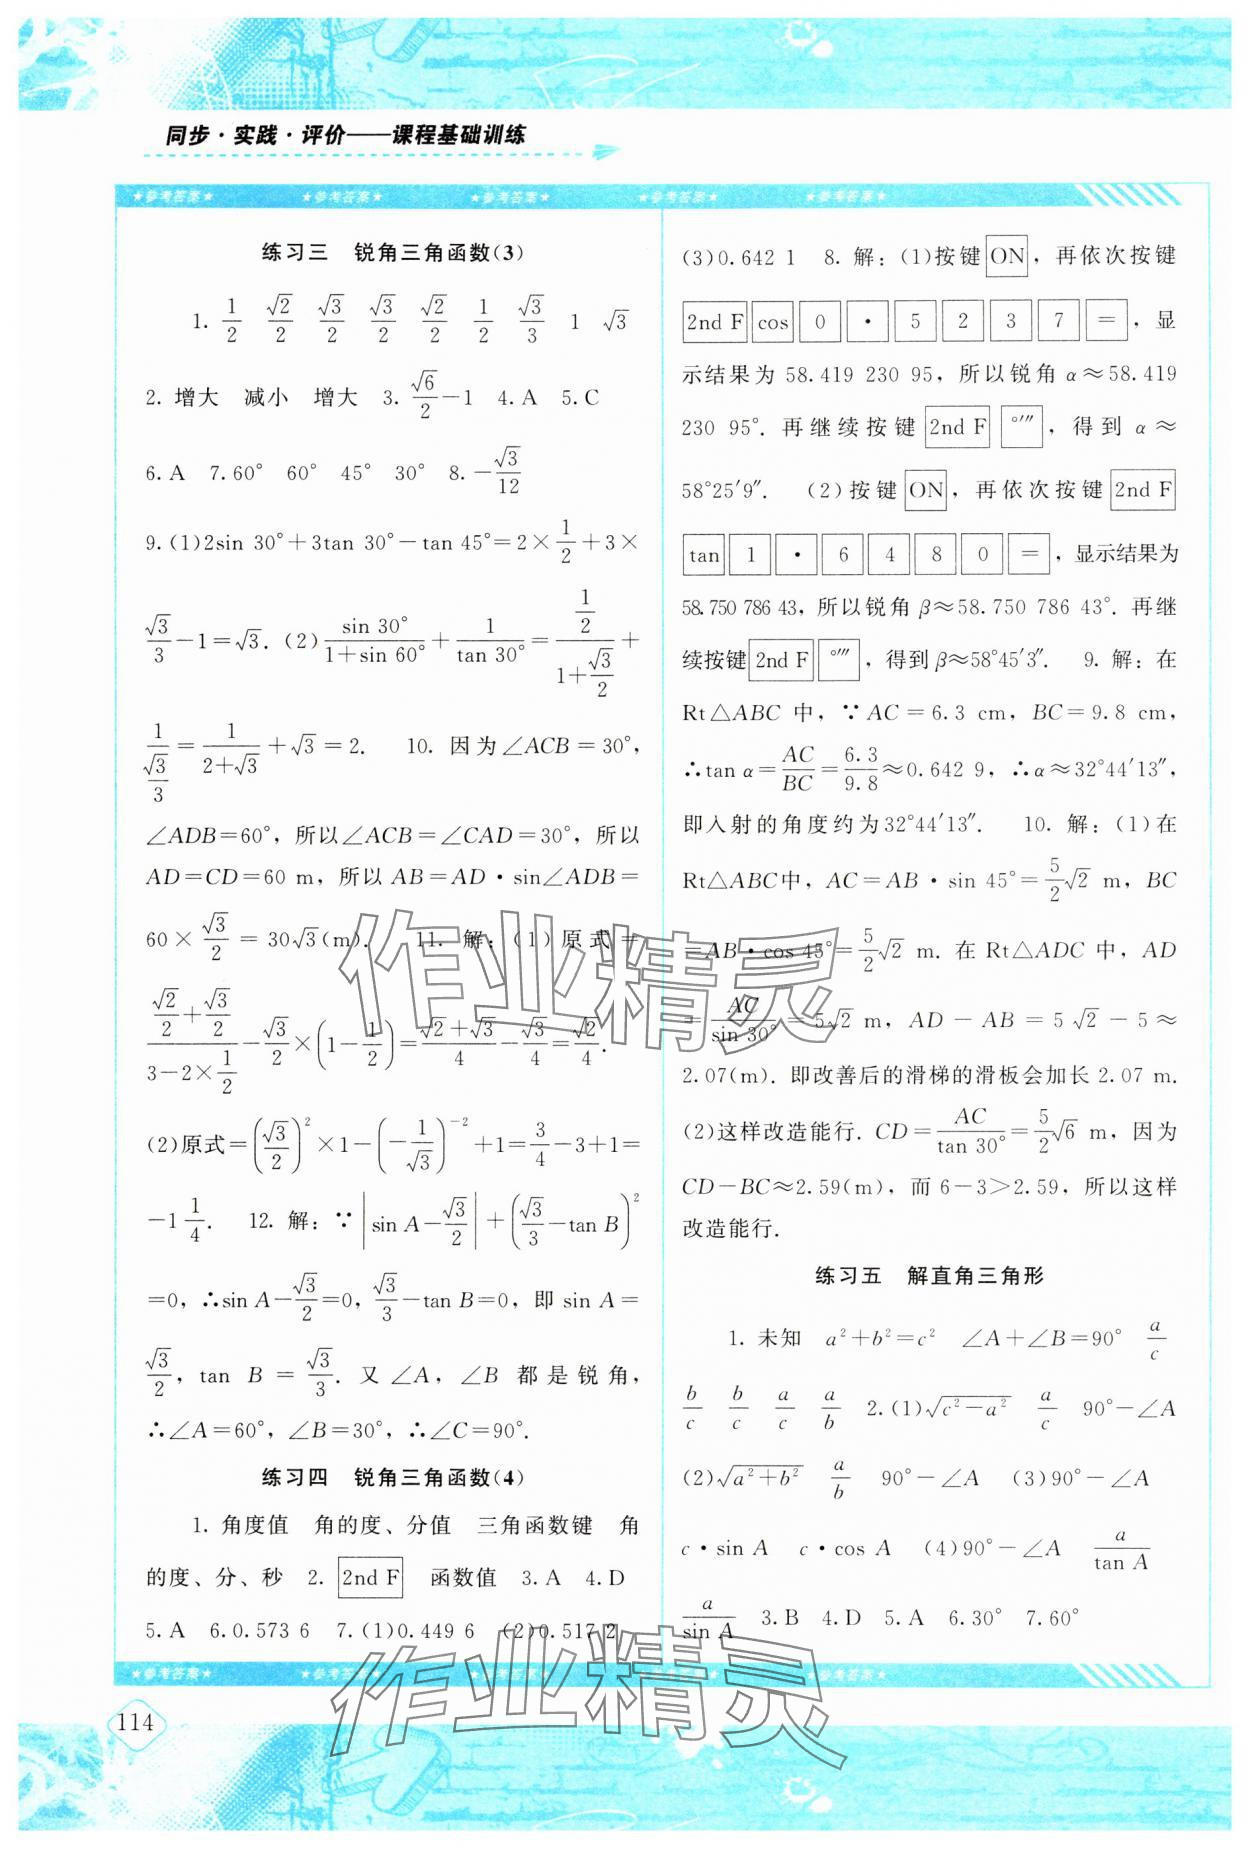 同步·实践·评价——课程基础训练
★参考答案★ ★参考答案★ ★参考答案★ ★参考答案★ ★参考答案★
练习三 锐角三角函数(3)
1. 1/2 √2/2 √3/2 √3/2 √2/2 1/2 √3/3 1 √3
2. 增大 减小 增大 3. √6/2-1 4.A 5.C
6.A 7.60° 60° 45° 30° 8.-√3/12
9.(1)2sin 30°+3tan 30°-tan 45°=2×1/2+3×
√3/3-1=√3.(2)sin 30°/(1+sin 60°)+1/tan 30°=(1/2)/(1+√3/2)+
1/(√3/3)=1/(2+√3)+√3=2. 10. 因为∠ACB=30°,
∠ADB=60°,所以∠ACB=∠CAD=30°,所以
AD=CD=60 m,所以 AB=AD·sin∠ADB=
60×√3/2=30√3(m). 11. 解:(1)原式=
(√2/2+√3/2)/(3-2×1/2)-√3/2×(1-1/2)=(√2+√3)/4-√3/4=√2/4.
(2)原式=(√3/2)²×1-(-1/√3)⁻²+1=3/4-3+1=
-1 1/4. 12. 解:∵|sin A-√3/2|+(√3/3-tan B)²
=0,∴sin A-√3/2=0,√3/3-tan B=0,即 sin A=
√3/2,tan B=√3/3. 又∠A,∠B 都是锐角,
∴∠A=60°,∠B=30°,∴∠C=90°.
练习四 锐角三角函数(4)
1. 角度值 角的度、分值 三角函数键 角
的度、分、秒 2. 2nd F 函数值 3.A 4.D
5.A 6.0.573 6 7.(1)0.449 6 (2)0.517 2
(3)0.642 1 8. 解:(1)按键 ON,再依次按键
2nd F cos 0 · 5 2 3 7 =,显
示结果为 58.419 230 95,所以锐角 α≈58.419
230 95°. 再继续按键 2nd F °′″,得到 α≈
58°25′9″. (2)按键 ON,再依次按键 2nd F
tan 1 · 6 4 8 0 =,显示结果为
58.750 786 43,所以锐角 β≈58.750 786 43°. 再继
续按键 2nd F °′″,得到 β≈58°45′3″. 9. 解:在
Rt△ABC 中,∵AC=6.3 cm,BC=9.8 cm,
∴tan α=AC/BC=6.3/9.8≈0.642 9,∴α≈32°44′13″,
即入射的角度约为32°44′13″. 10. 解:(1)在
Rt△ABC中,AC=AB·sin 45°=5/2√2 m,BC
=AB·cos 45°=5/2√2 m. 在 Rt△ADC 中,AD
=AC/sin 30°=5√2 m,AD-AB=5√2-5≈
2.07(m). 即改善后的滑梯的滑板会加长 2.07 m.
(2)这样改造能行. CD=AC/tan 30°=5/2√6 m,因为
CD-BC≈2.59(m),而 6-3>2.59,所以这样
改造能行.
练习五 解直角三角形
1. 未知 a²+b²=c² ∠A+∠B=90° a/c
b/c b/c a/c a/b 2.(1)√(c²-a²) a/c 90°-∠A
(2)√(a²+b²) a/b 90°-∠A (3)90°-∠A
c·sin A c·cos A (4)90°-∠A a/tan A
a/sin A 3.B 4.D 5.A 6.30° 7.60°
作业精灵
作业精灵
★参考答案★ ★参考答案★ ★参考答案★ ★参考答案★ ★参考答案★
114